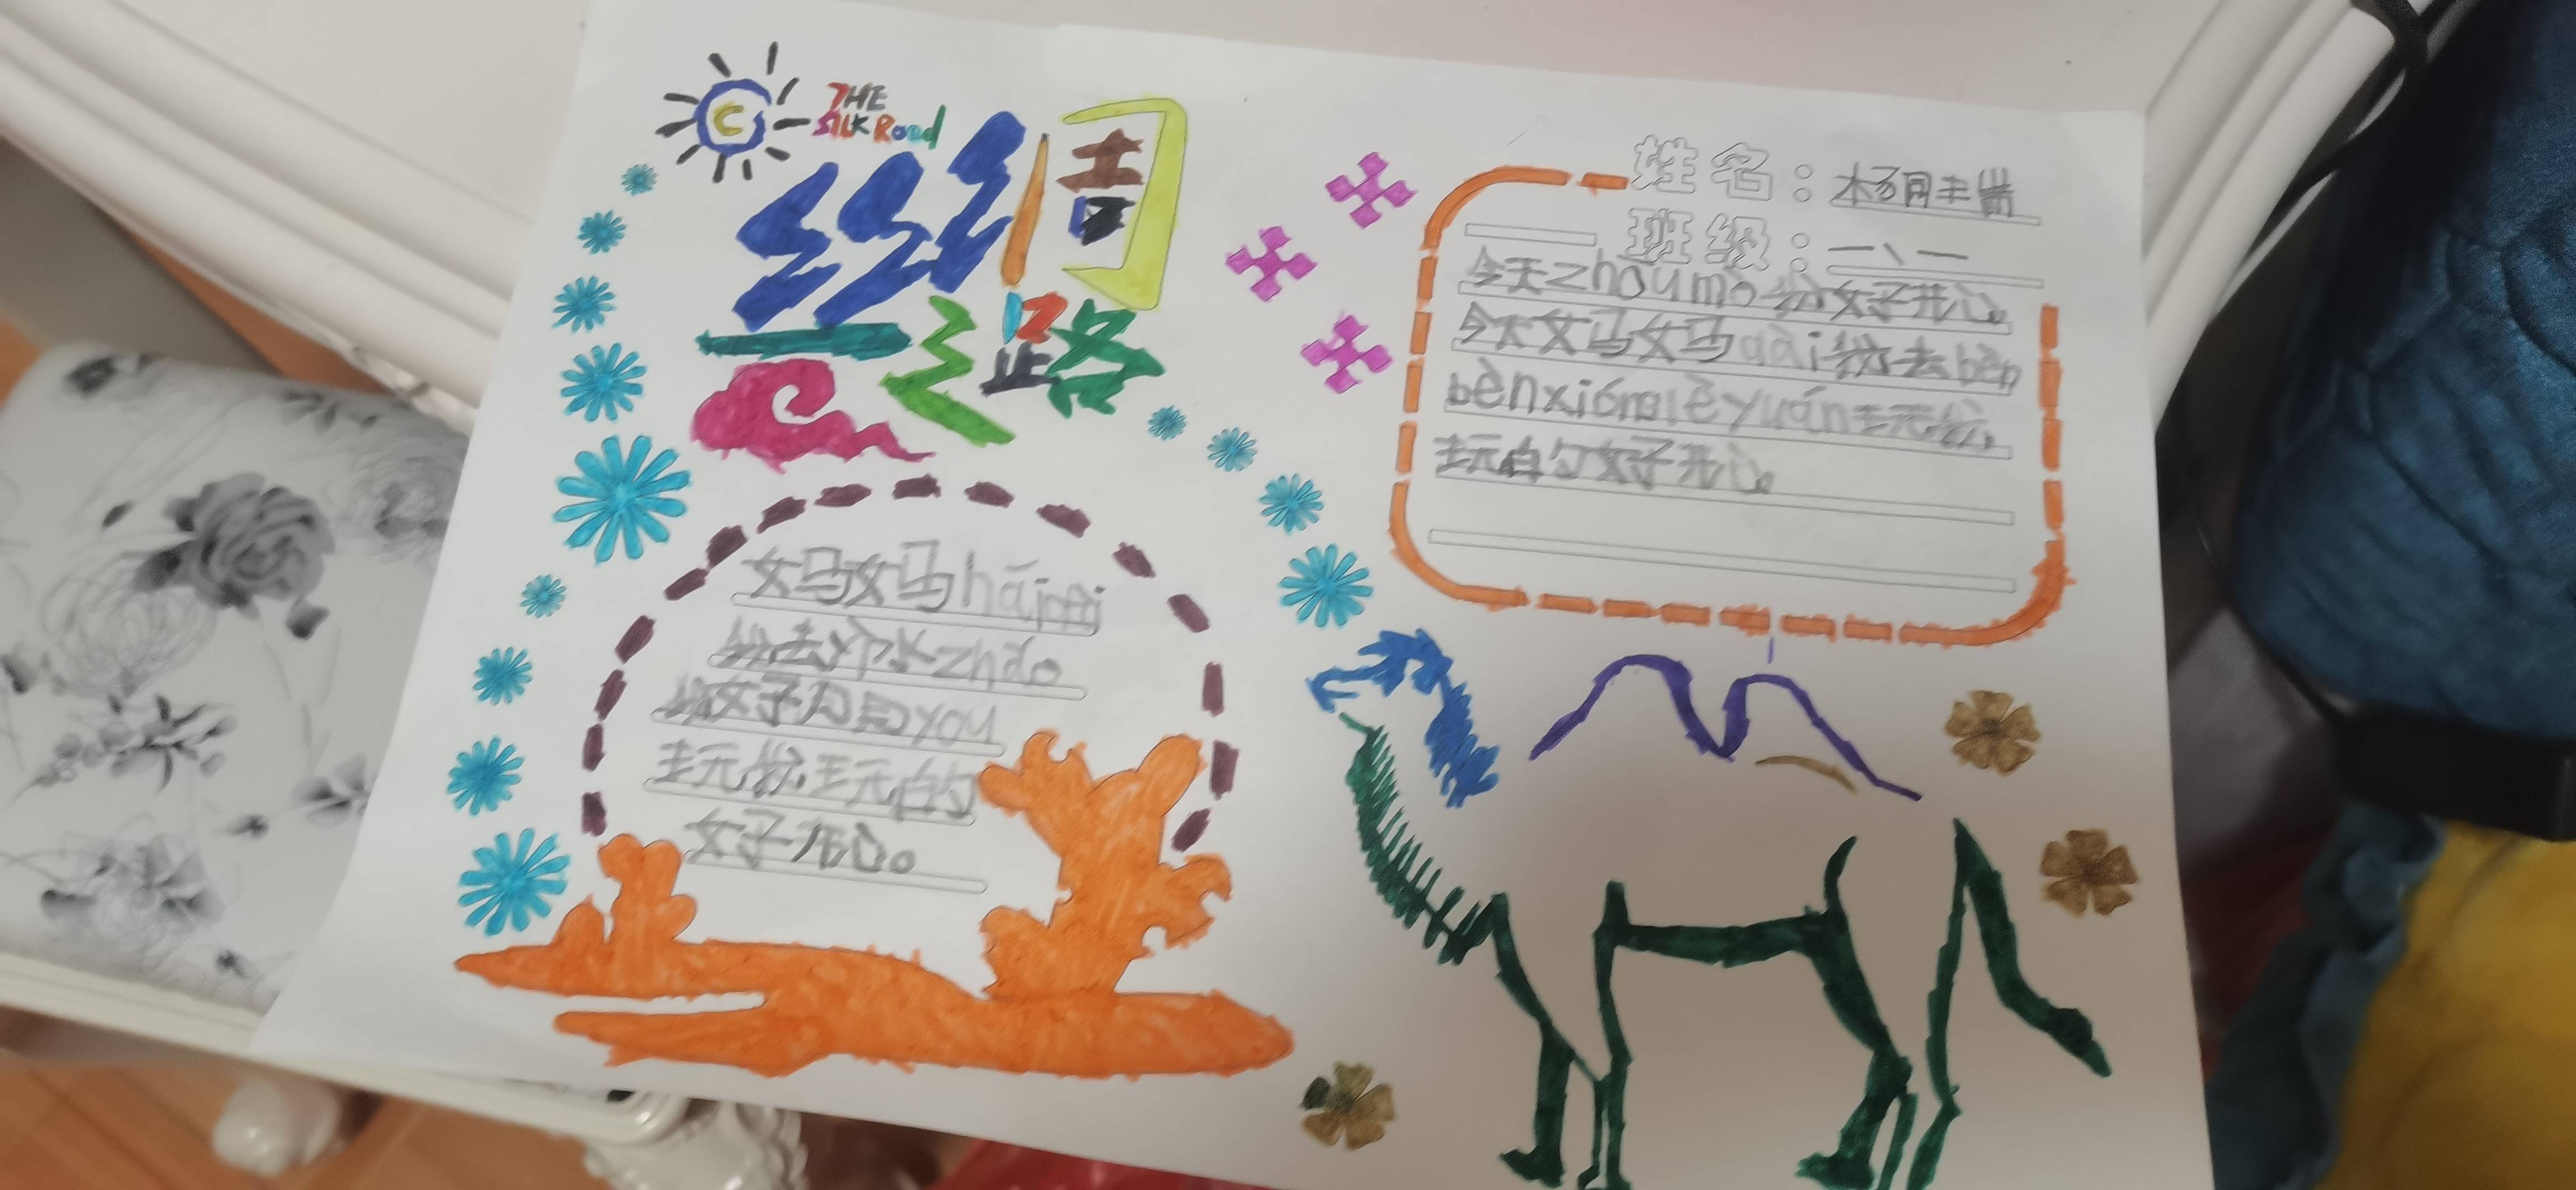 THE
SILK Road
丝绸
之路
姓名：杨
班级：一、一
今天zhōumò我好开心。
今天妈妈dài我去bèn
bènxiónglèyuán玩，我
玩的好开心。
妈妈hái
我去zhǎo
我好朋友you
玩，我玩的
好开心。